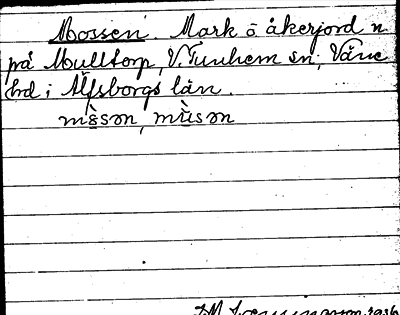 Mossen. Mark ō åkerjord n
på Mulltorp, V. Tunhem sn, Väne
hd i Älfsborgs län.
mɞ̀sən, mùsən
1936